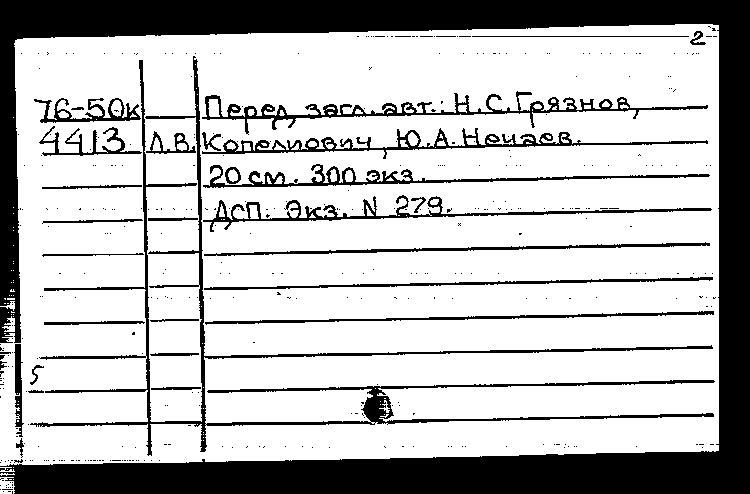 2
76-50к Перед. загл. авт.: Н.С.Грязнов,
4413 Л.В. Копелиович, Ю.А.Нечаев.
20 см. 300 экз.
ДСП. Экз. N 279.
5